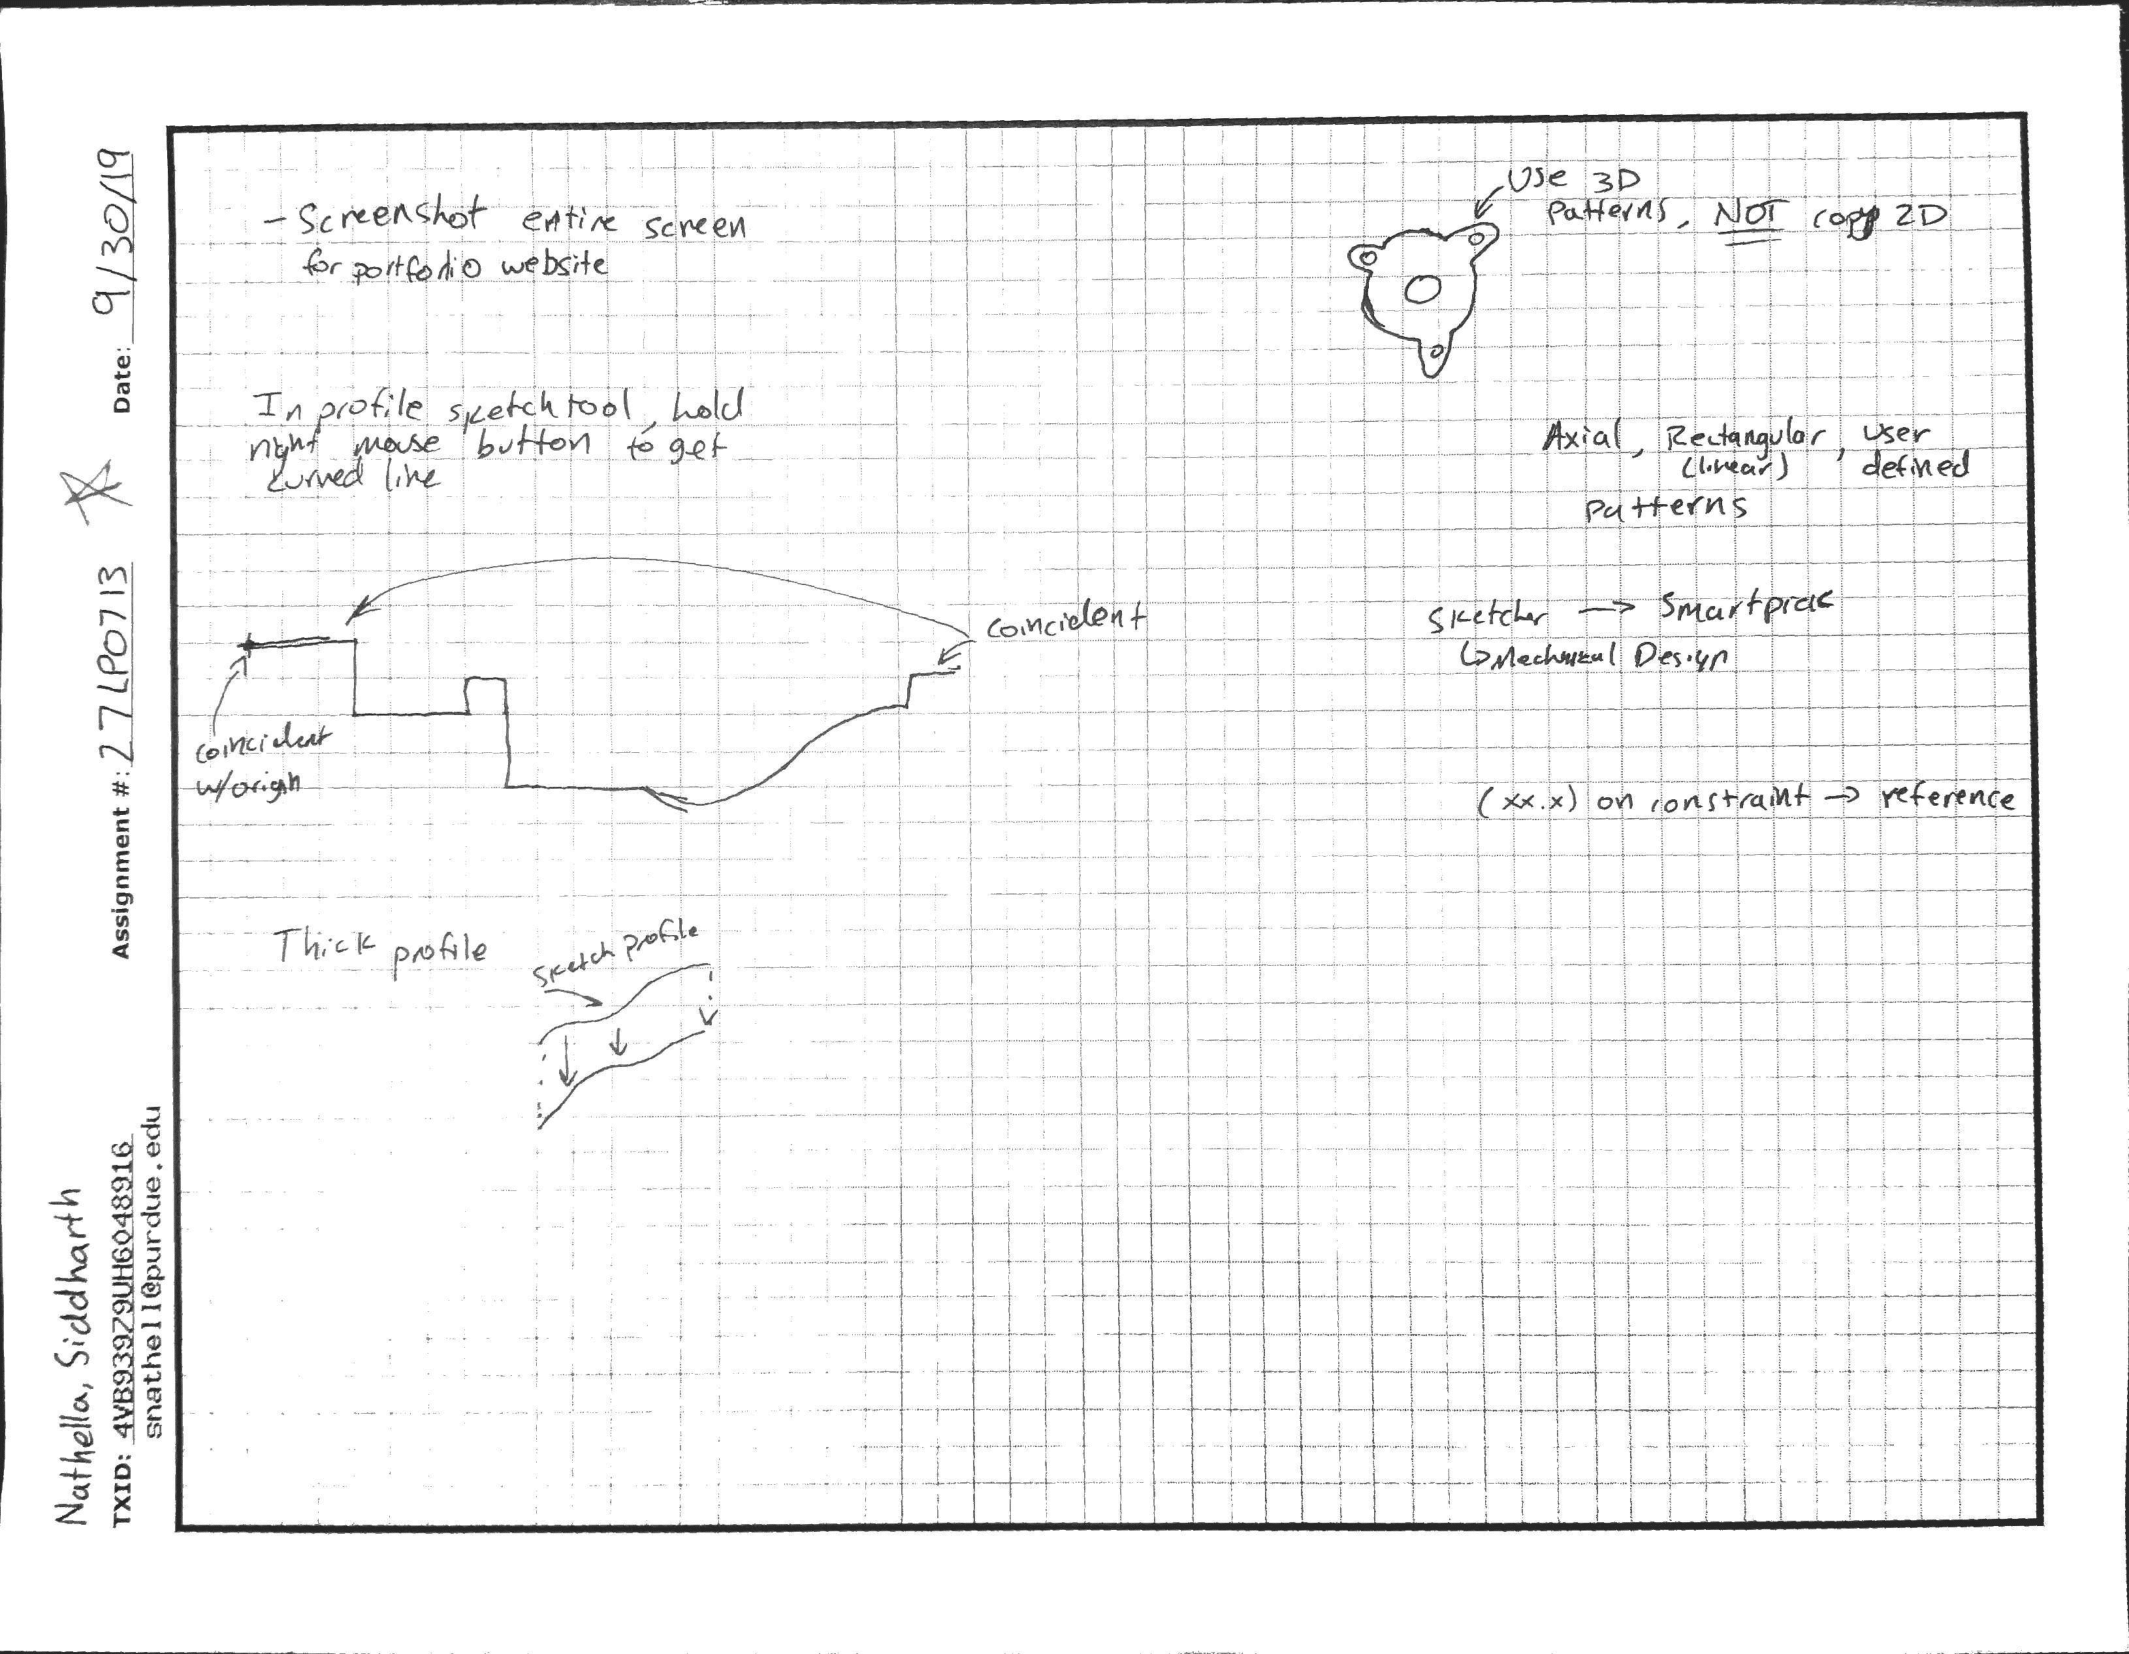 Nathella, Siddharth
TXID: 4VB93979UH6048916
snathell@purdue.edu
Assignment #: 27LPO713
Date: 9/30/19
- Screenshot entire screen
for portfolio website
In profile sketch tool, hold
right mouse button to get
curved line
coincident
coincident
w/origin
Thick profile
sketch profile
Use 3D
patterns, NOT copy 2D
Axial, Rectangular, user
(linear) defined
patterns
Sketcher → Smartpick
↳ Mechanical Design
(xx.x) on constraint → reference